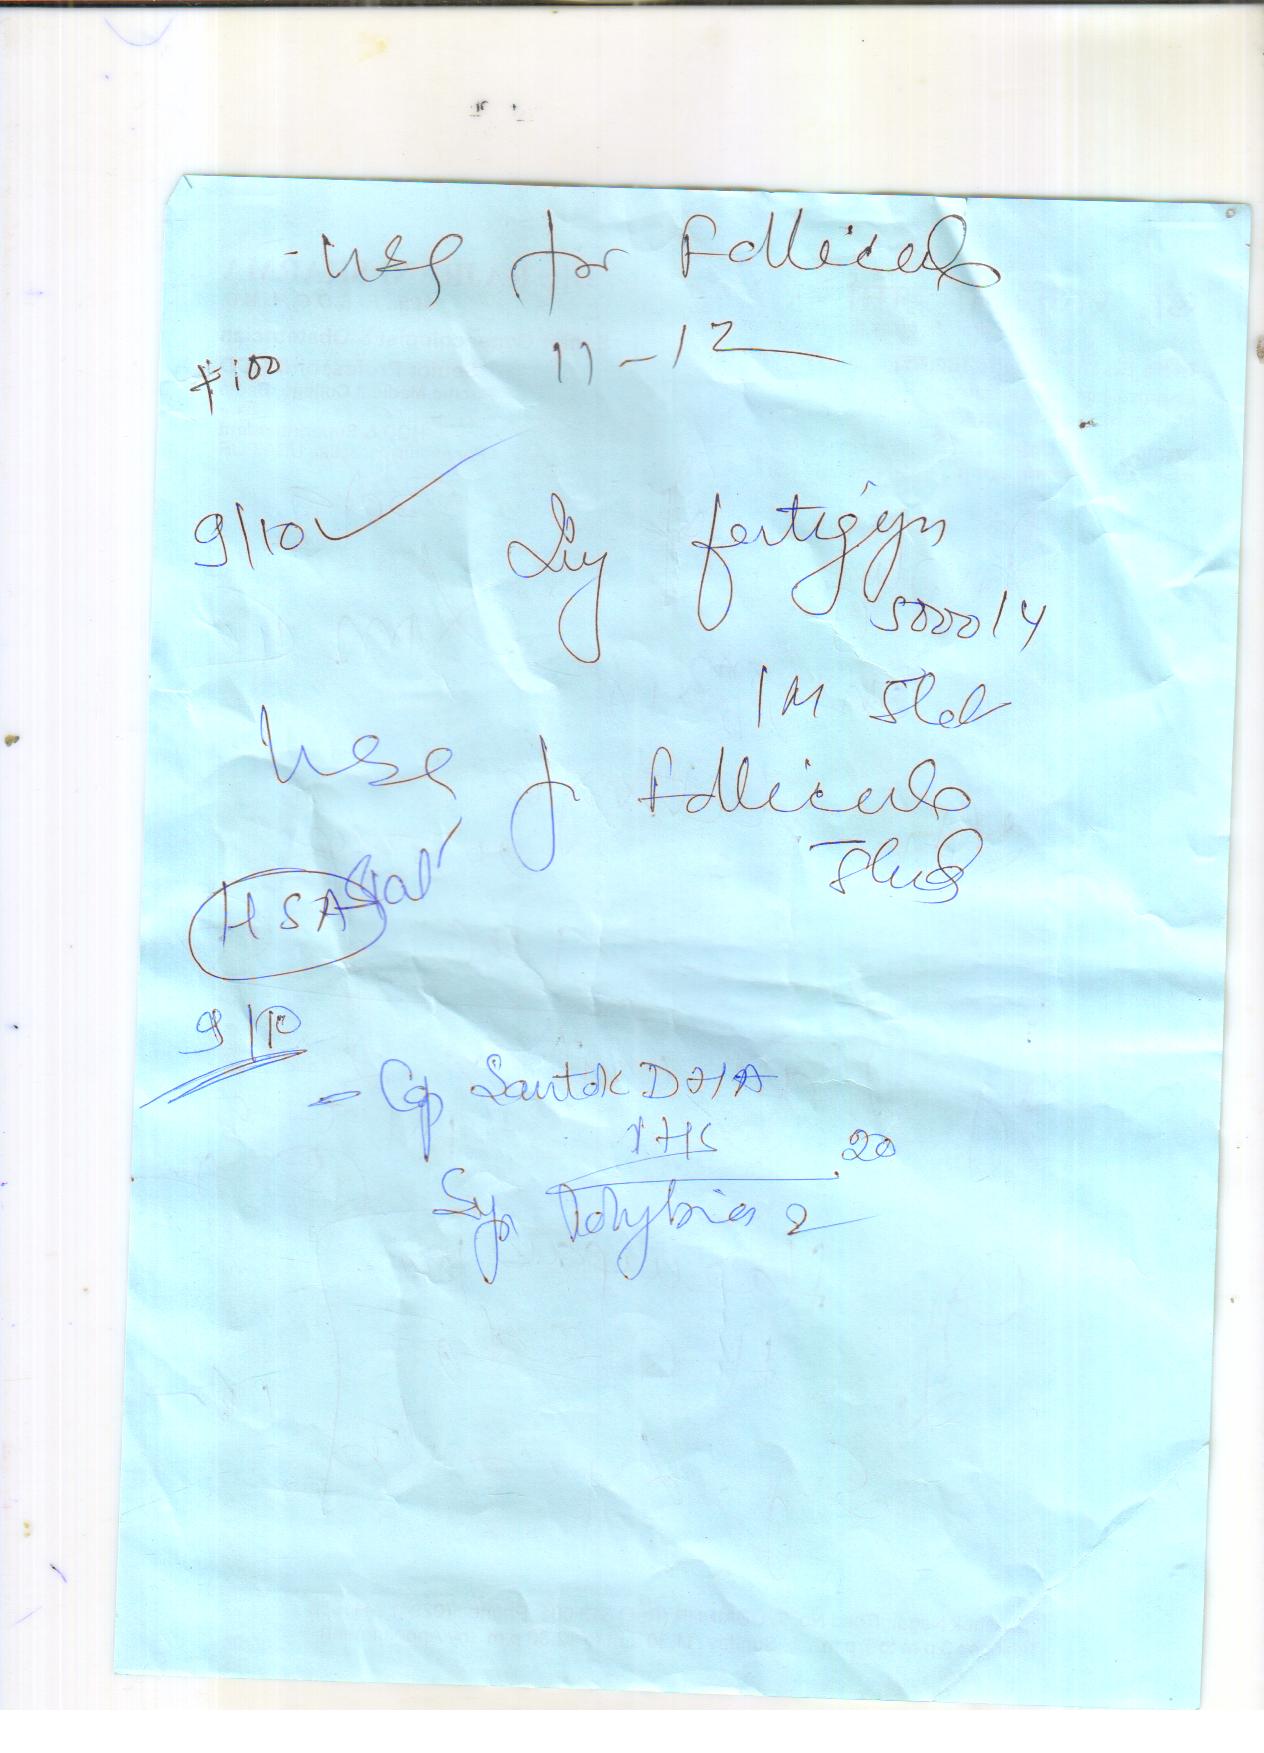 - USG for Follicule
11-12
9/10
Inj fertigyn
5000 IU
IM Stat
USG f Follicule
HSA
9/10
- Cap Santok DHA
1 HS
20
Syp
2